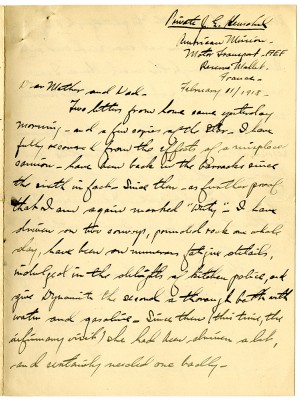 Private J. E.
American Mission -
Motor Transport - AEF
Reserve Mallet -
France -
February 11/1918 -
Dear Mother and Dad -
Two letters from home came yesterday
morning - and a few copies of the Star. I have
fully recovered from the effects of a misplaced
- have been back in the barracks since
the ninth in fact - Since then - as further proof
that I am again marked "Duty" - I have
driven on two convoys, pounded rock one whole
day, have been on numerous fatigue details,
indulged in the delights of kitchen police, and
give Dynamite the second a thorough bath with
water and gasoline - Since then (this time, the
infirmary visit) she had been driven a bit,
and certainly needed one badly -